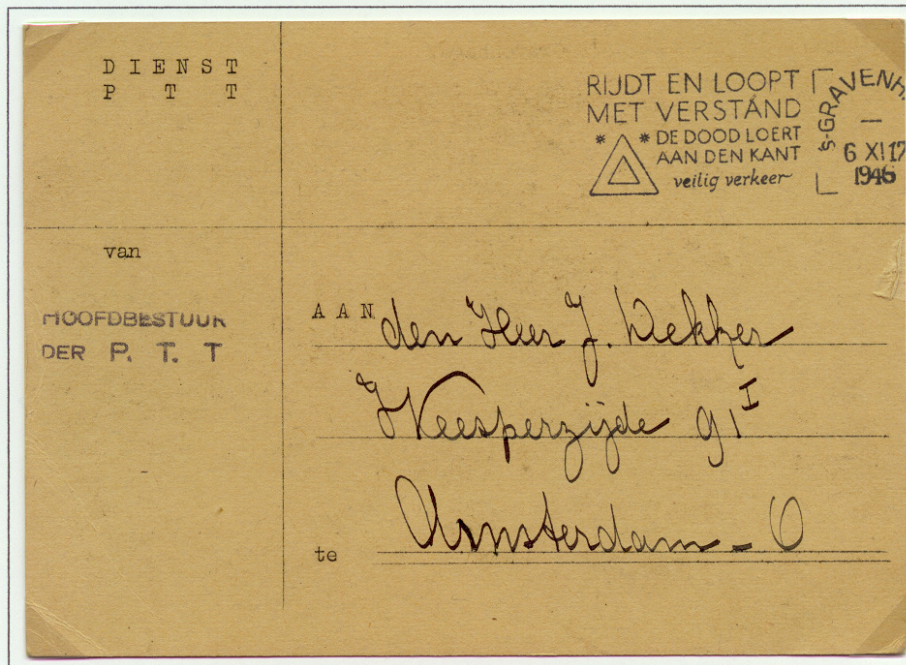 DIENST
P T T
RIJDT EN LOOPT
MET VERSTAND
* * DE DOOD LOERT
AAN DEN KANT
veilig verkeer
's-GRAVENH
6 XI 17
1946
van
HOOFDBESTUUR
DER P. T. T
AAN den Heer J. Dekker
Weesperzijde 91 I
te Amsterdam - O